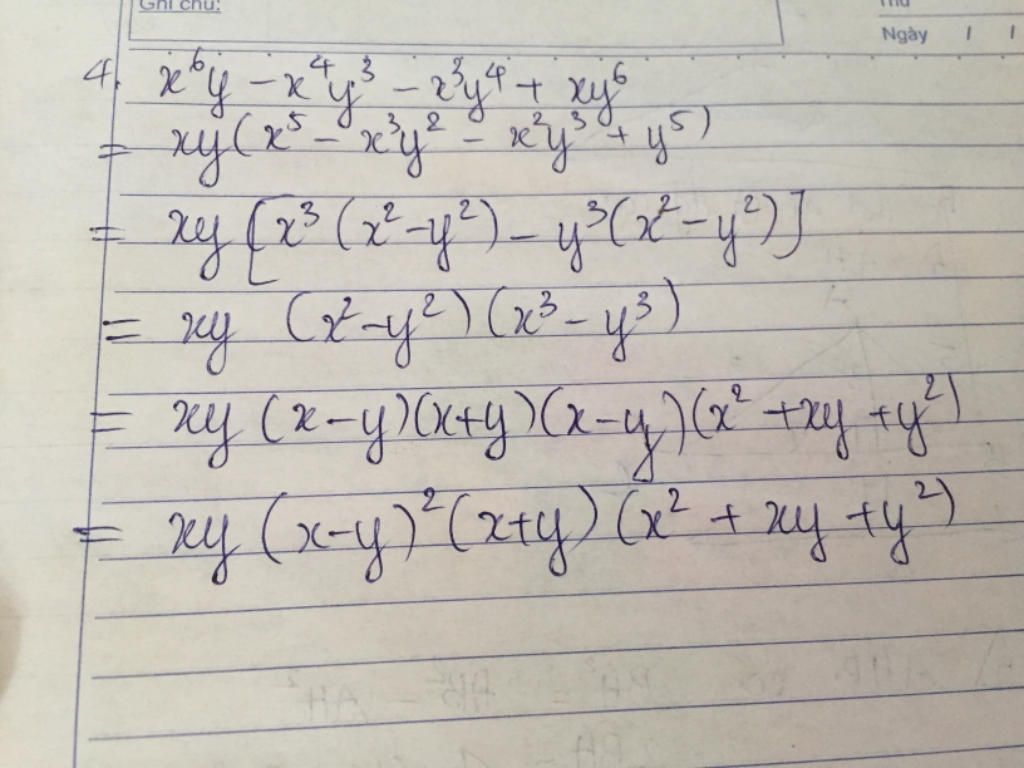 Ghi chú:
Thứ
Ngày / /
4. x⁶y - x⁴y³ - x³y⁴ + xy⁶
= xy(x⁵ - x³y² - x²y³ + y⁵)
= xy [x³ (x²-y²) - y³(x²-y²)]
= xy (x²-y²)(x³-y³)
= xy (x-y)(x+y)(x-y)(x²+xy+y²)
= xy (x-y)²(x+y)(x² + xy +y²)